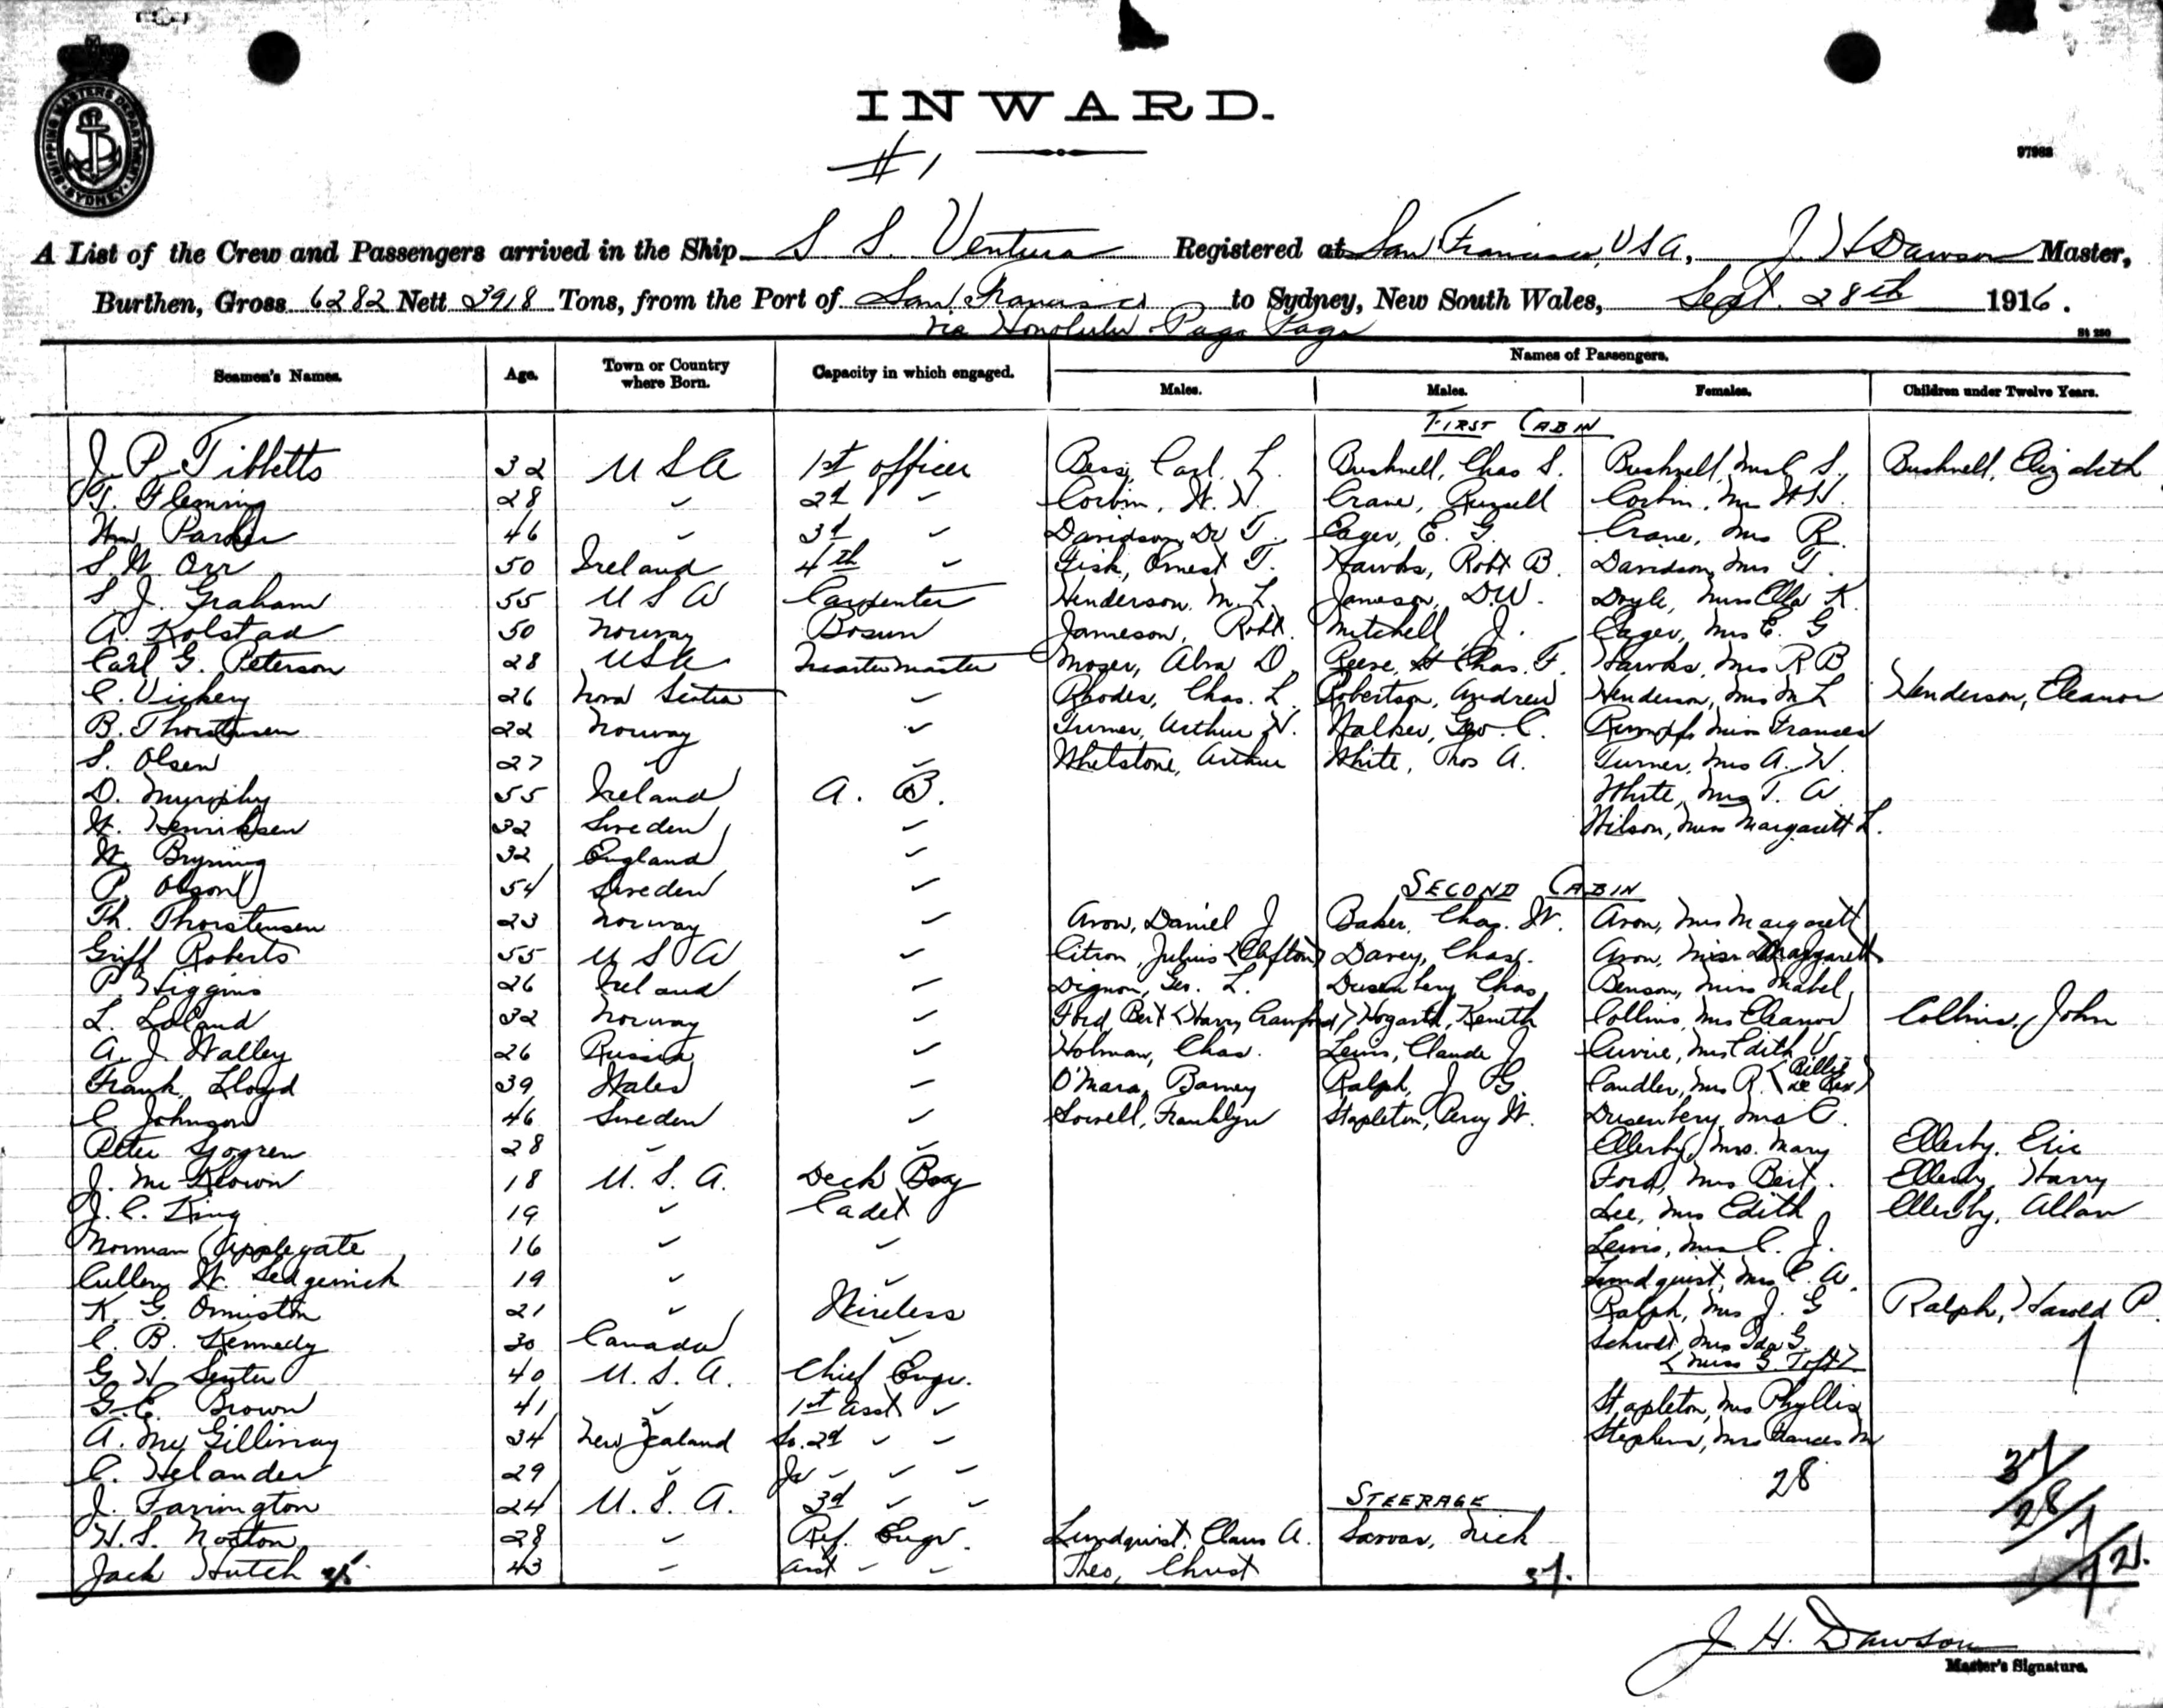 SHIPPING MASTERS DEPARTMENT · SYDNEY ·
INWARD.
#1
97988
A List of the Crew and Passengers arrived in the Ship S S. Ventura Registered at San Francisco, USA, J. H Dawson Master,
Burthen, Gross 6282 Nett 3918 Tons, from the Port of San Francisco to Sydney, New South Wales, Sept. 28th 1916.
via Honolulu - Pago Pago
St 250
Names of Passengers.
Seamen's Names. Age. Town or Country where Born. Capacity in which engaged. Males. Males. Females. Children under Twelve Years.
FIRST CABIN
J. P. Tibbetts 32 U S A 1st officer Bess, Carl. L. Bushnell, Chas S. Bushnell, Mrs C S. Bushnell, Elizabeth
T. Fleming 28 " 2d " Corbin, W. H. Crane, Russell Corbin, Mrs W H.
Wm Parker 46 " 3d " Davidson, Dr T. Eager, E. G. Crane, Mrs R.
S. W. Orr 50 Ireland 4th " Fisk, Ernest T. Hawks, Robt B. Davidson, Mrs T.
S. J. Graham 55 U S A Carpenter Henderson, M. L. Jameson, D.W. Doyle, Miss Ella K.
A. Kolstad 50 Norway Bosun Jameson, Robt. Mitchell J. Eager, Mrs E. G.
Carl G. Peterson 28 USA Quartermaster Moser, Alva D. Reese, Chas. F. Hawks, Mrs R B
C. Vickery 26 Nova Scotia " Rhodes, Chas. L. Robertson, Andrew Henderson, Mrs M L Henderson, Eleanor
B. Thorstensen 22 Norway " Turner, Arthur H. Walker, Geo. C. Rumpf, Miss Frances
S. Olsen 27 " " Whetstone, Arthur White, Thos A. Turner, Mrs A. H.
D. Murphy 55 Ireland A. B. White, Mrs T. A
W. Henriksen 32 Sweden " Wilson, Miss Margarett L.
W. Bryning 32 England "
P. Olson 54 Sweden "
SECOND CABIN
Th. Thorstensen 23 Norway " Aron, Daniel J Baker, Chas. W. Aron, Mrs Margarett
Griff Roberts 55 U S A " Citron, Julius (Clifton) Davey, Chas. Aron, Miss Margarett
P. Higgins 26 Ireland " Dignon, Geo. L. Dusenbery, Chas. Benson, Miss Mabel
L. Loland 32 Norway " Ford, Bert (Harry Crawford) Hogarth, Kenneth Collins, Mrs Eleanor Collins, John
A. J. Walley 26 Russia " Holman, Chas. Lewis, Claude J Currie, Mrs Edith V.
Frank Lloyd 39 Wales " O'Mara, Barney Ralph, J G. Candler, Mrs R.
C. Johnson 46 Sweden " Sowell, Franklyn Stapleton, Percy W. Dusenbery, Mrs C.
Peter Sjogren 28 " " Ellerby, Mrs. Mary Ellerby, Eric
J. McKeown 18 U. S. A. Deck Boy Ford, Mrs Bert. Ellerby, Harry
J. C. King 19 " Cadet Lee, Mrs Edith Ellerby, Allan
Norman Applegate 16 " " Lewis, Mrs C. J.
Cullen W. Sedgewick 19 " " Lundquist, Mrs C. A.
K. G. Ormiston 21 " Wireless Ralph, Mrs J. G Ralph, Harold P.
C. B. Kennedy 30 Canada " Mrs Ida G.
(Miss G. Toft)
G. H Senter 40 U. S. A. Chief Engr.
G. C. Brown 41 " 1st Asst " Stapleton, Mrs Phyllis
A. McGillivray 34 New Zealand Sr. 2d " " Stephens, Mrs Frances M
C. Helander 29 " Jr " " " 28 37
STEERAGE
J. Farrington 24 U. S. A. 3d " " 28
H. S. Norton 28 " Ref. Engr. Lundquist, Claus A. Sarvas, Nick 7
Jack Hutch 35 43 " Asst " " Theo, Christ 37. 72.
J. H. Dawson
Master's Signature.